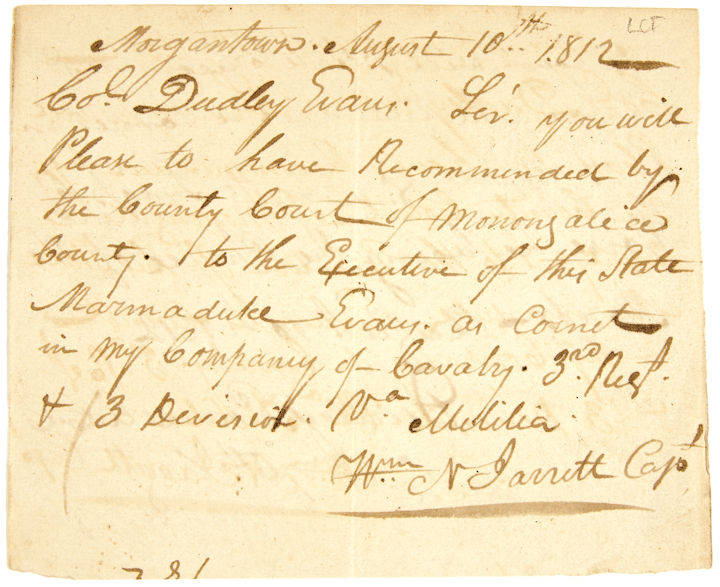 LCF
Morgantown. August 10th. 1812
Col. Dudley Evans. Sir. you will
Please to have Recommended by
the County Court of Monongalice
County. to the Executive of this State
Marmaduke Evans. as Cornet
in my Company of Cavalry. 3rd Regt.
& 3 Devision. Va Melitia
Wm N Jarrett Capt